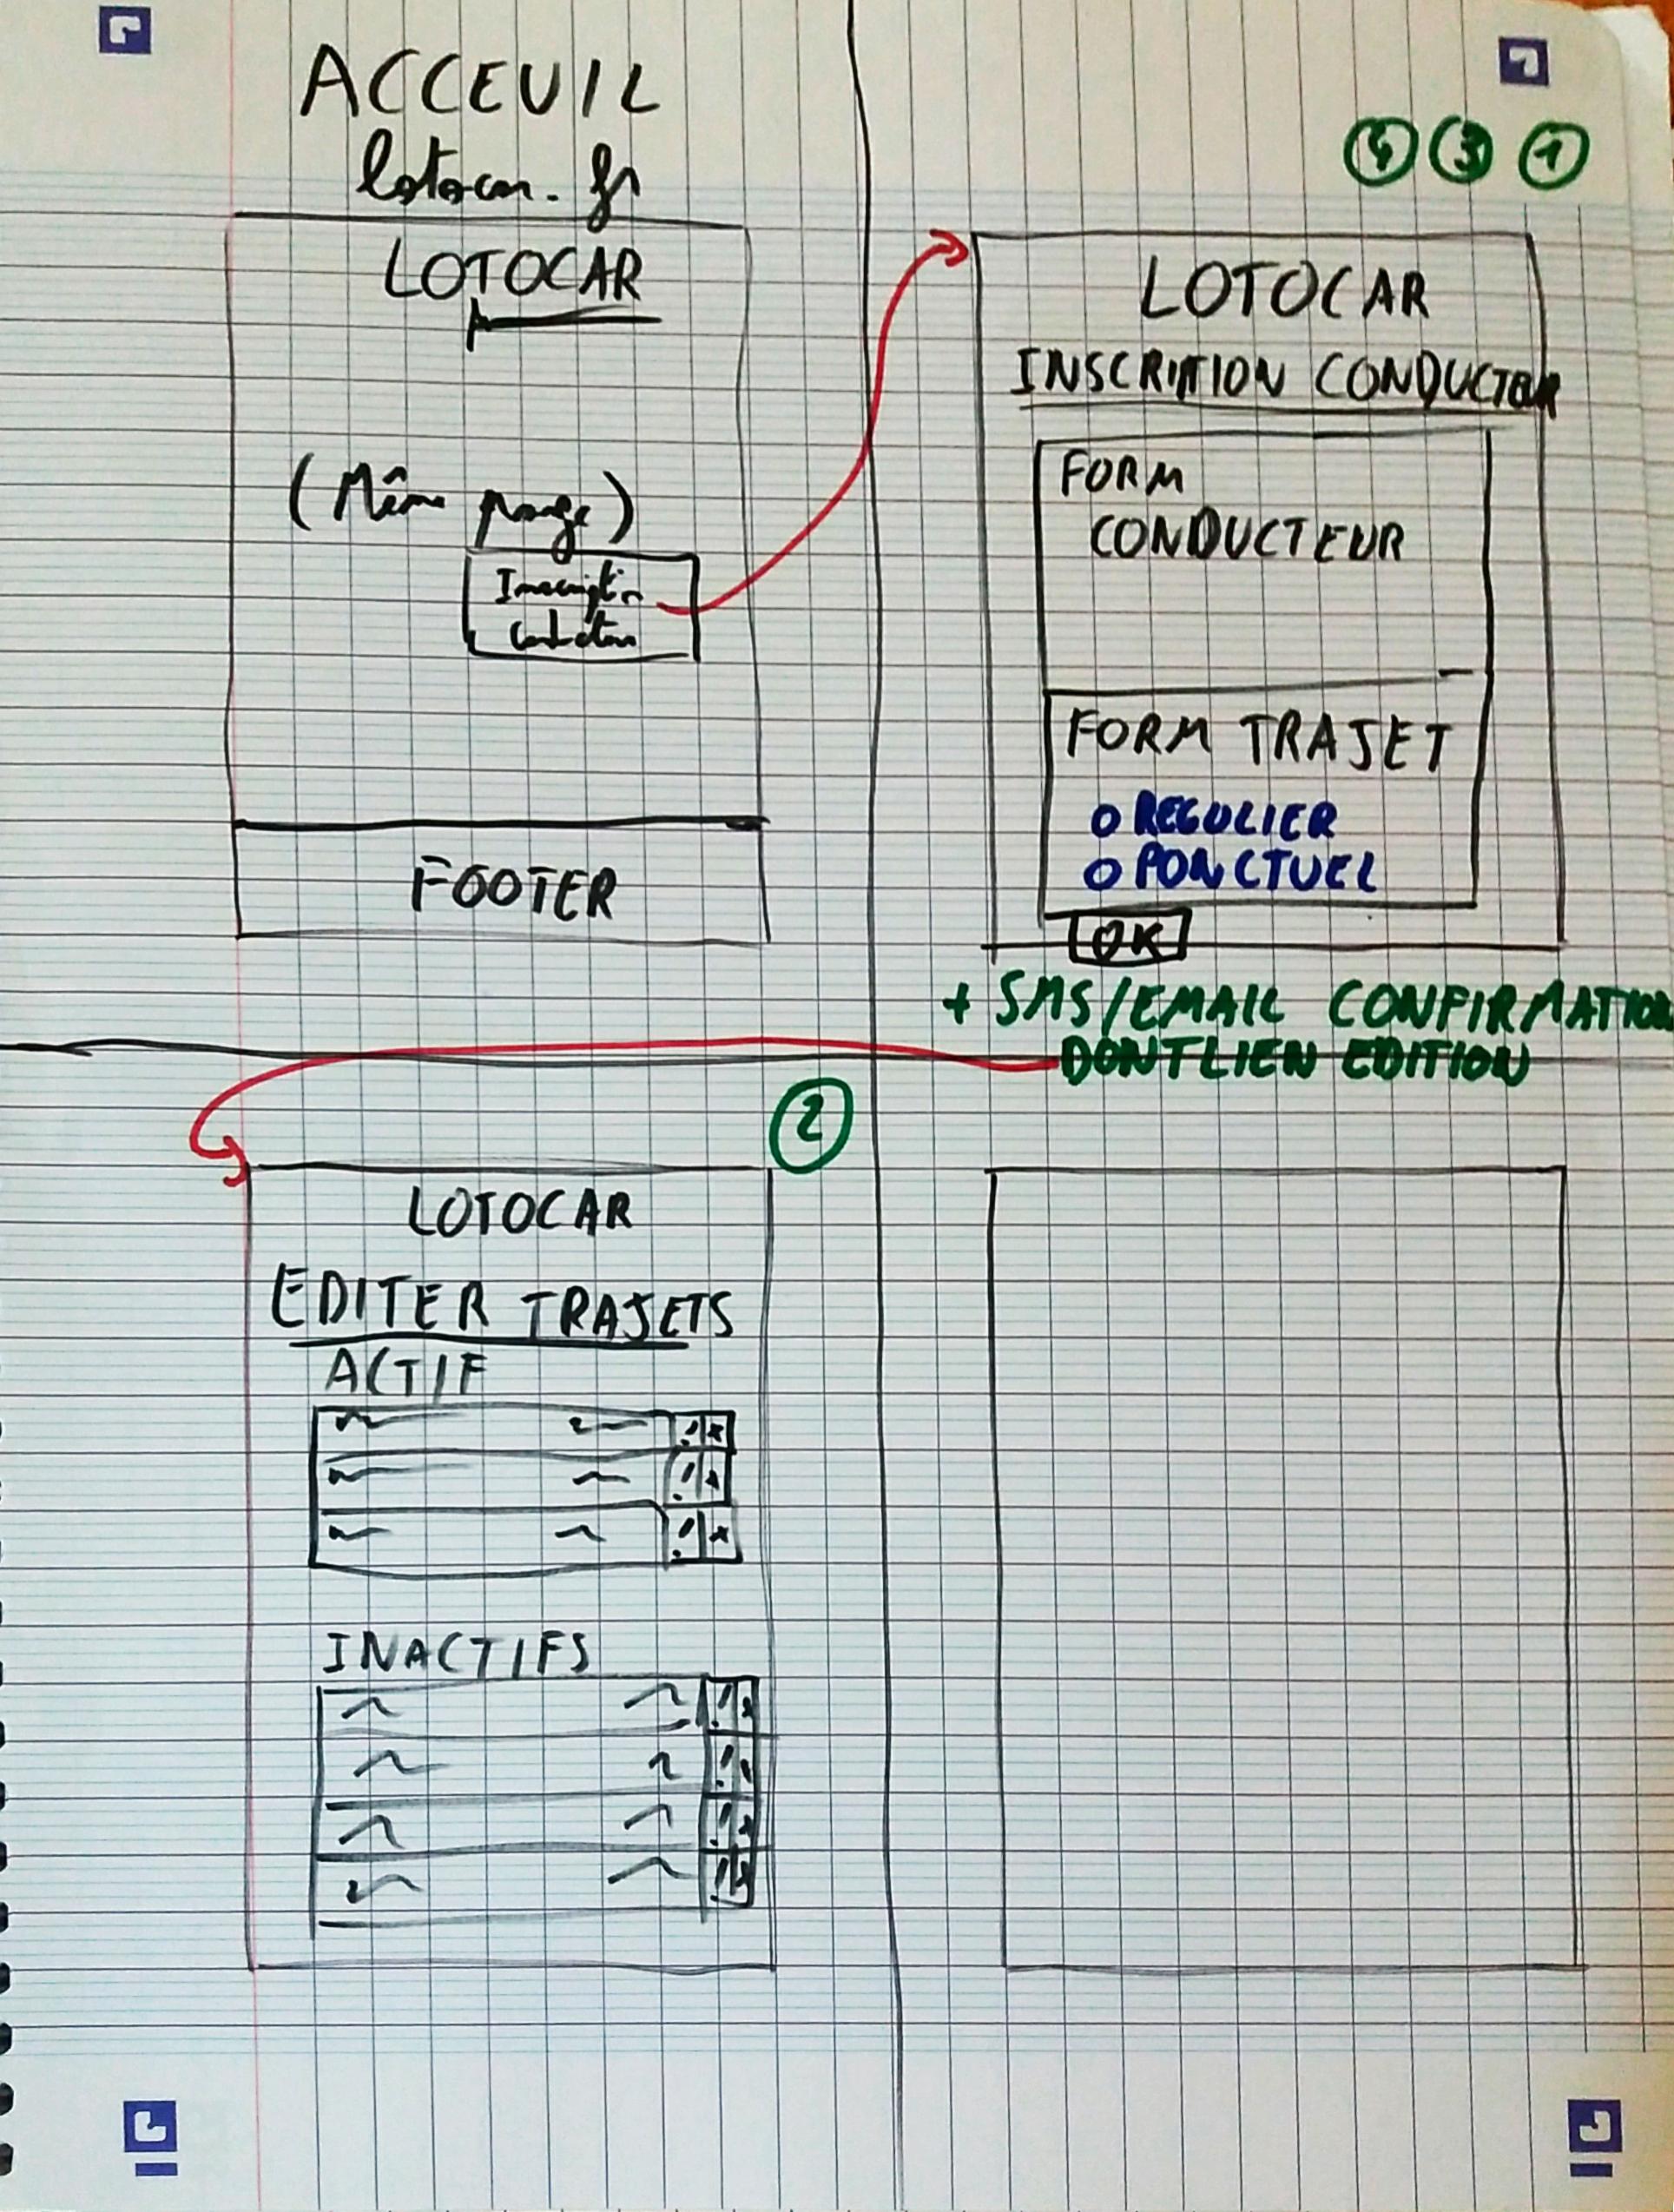 ACCEUIL
lotocar.fr
LOTOCAR
(Même page)
Inscription
Conducteur
FOOTER
3 1
LOTOCAR
INSCRIPTION CONDUCTEUR
FORM
CONDUCTEUR
FORM TRAJET
O REGULIER
O PONCTUEL
OK
+ SMS/EMAIL CONFIRMATION
DONT LIEN EDITION
2
LOTOCAR
EDITER TRAJETS
ACTIF
INACTIFS